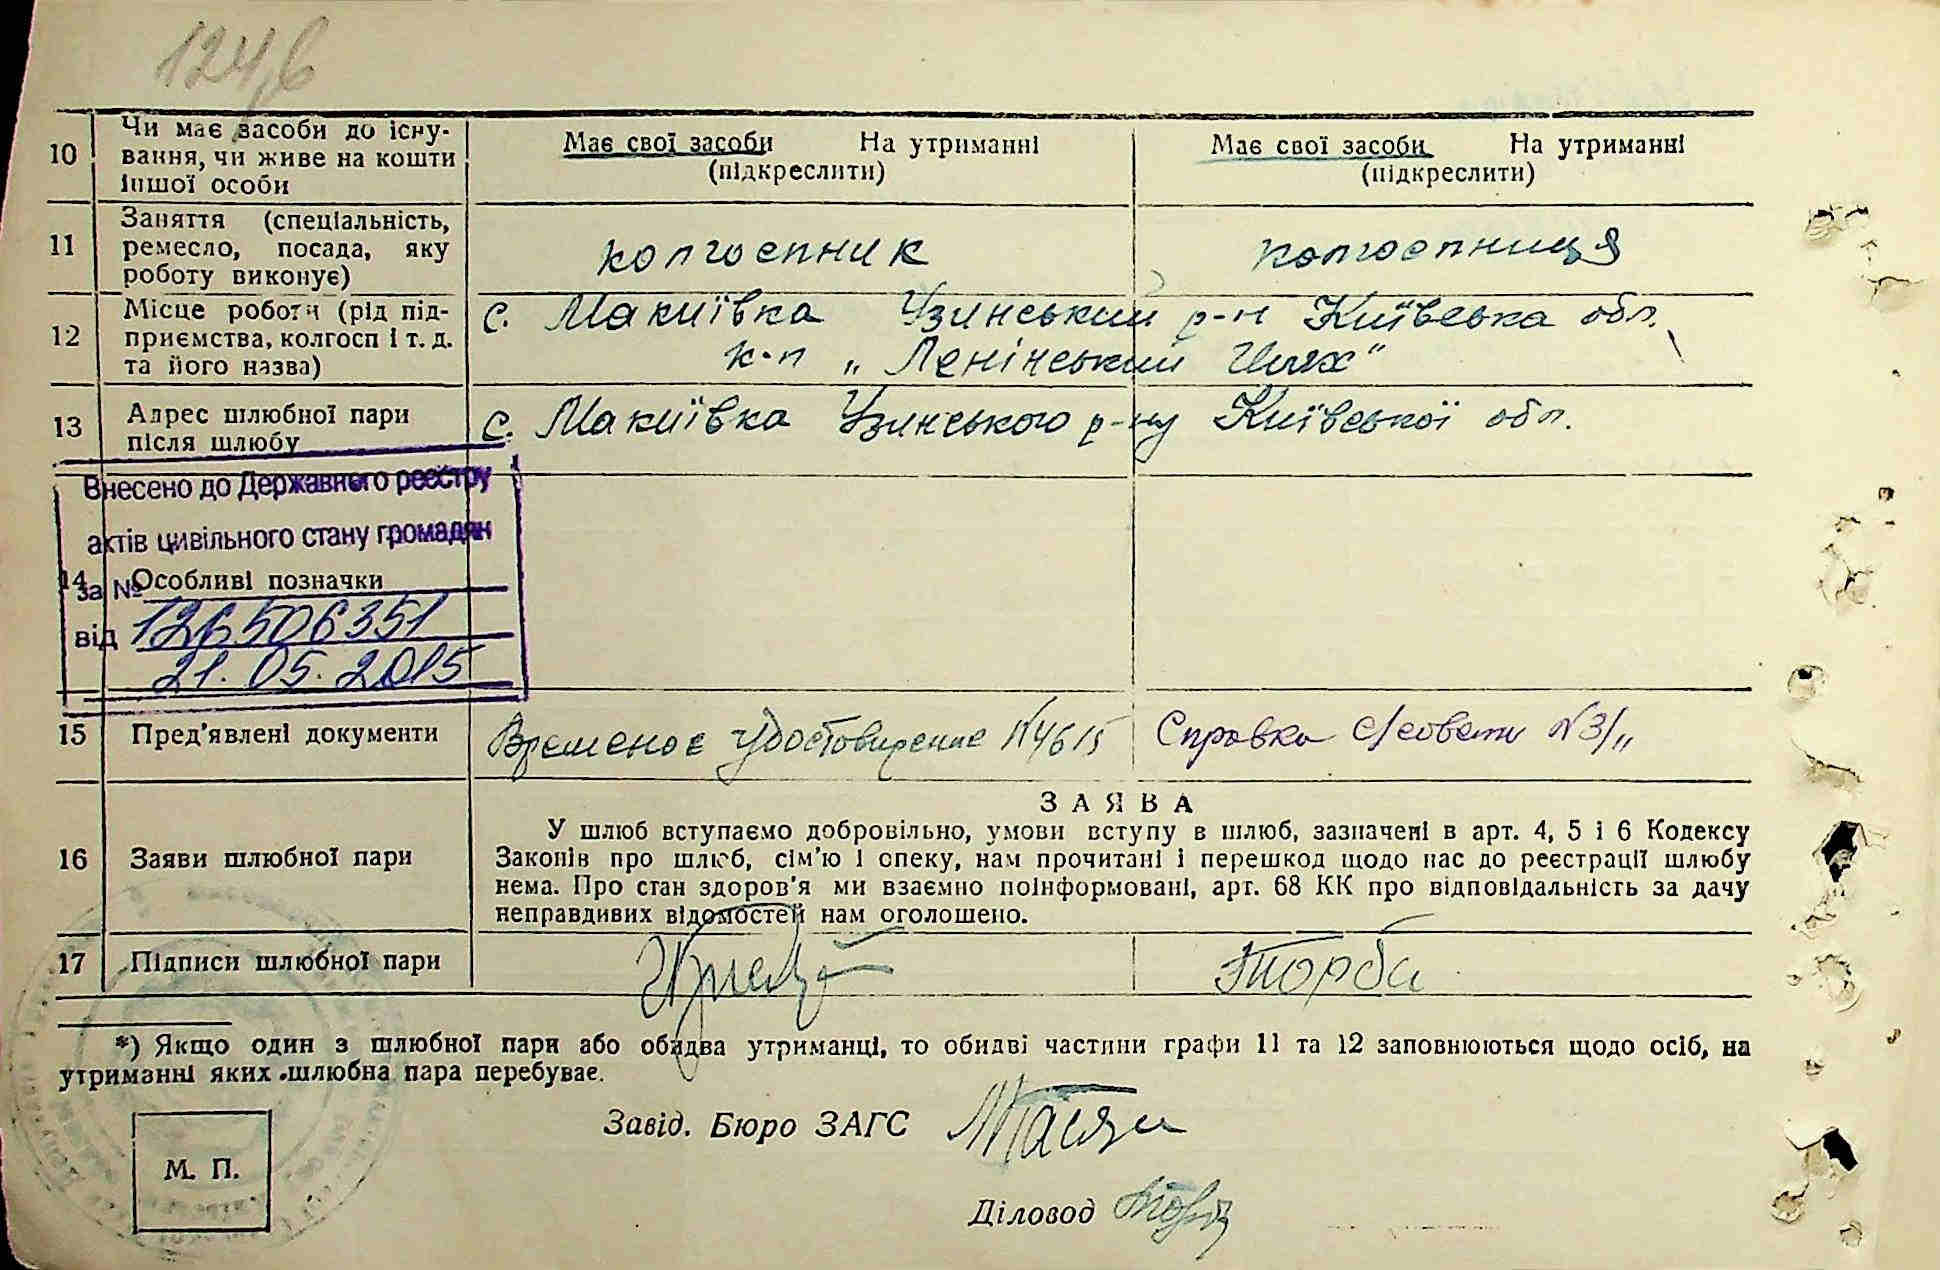 124,6
10 Чи має засоби до існу-
вання, чи живе на кошти
іншої особи
Має свої засоби На утриманні
(підкреслити)
Має свої засоби На утриманні
(підкреслити)
11 Заняття (спеціальність,
ремесло, посада, яку
роботу виконує)
колгоспник
колгоспниця
12 Місце роботи (рід під-
приємства, колгосп і т. д.
та його назва)
с. Макиївка Узинський р-н Київська обл.
к-п „Ленінський Шлях"
13 Адрес шлюбної пари
після шлюбу
с. Макиївка Узинського р-ну Київської обл.
Внесено до Державного реєстру
актів цивільного стану громадян
14 Особливі позначки
за № 126506351
від 21.05.2015
15 Пред'явлені документи
Временое удостовирение N4615
Справка с/совету N31
16 Заяви шлюбної пари
ЗАЯВА
У шлюб вступаємо добровільно, умови вступу в шлюб, зазначені в арт. 4, 5 і 6 Кодексу
Законів про шлюб, сім'ю і опеку, нам прочитані і перешкод щодо нас до реєстрації шлюбу
нема. Про стан здоров'я ми взаємно поінформовані, арт. 68 КК про відповідальність за дачу
неправдивих відомостей нам оголошено.
17 Підписи шлюбної пари
Торба
*) Якщо один з шлюбної пари або обидва утриманці, то обидві частини графи 11 та 12 заповнюються щодо осіб, на
утриманні яких шлюбна пара перебуває.
Завід. Бюро ЗАГС
М. П.
Діловод